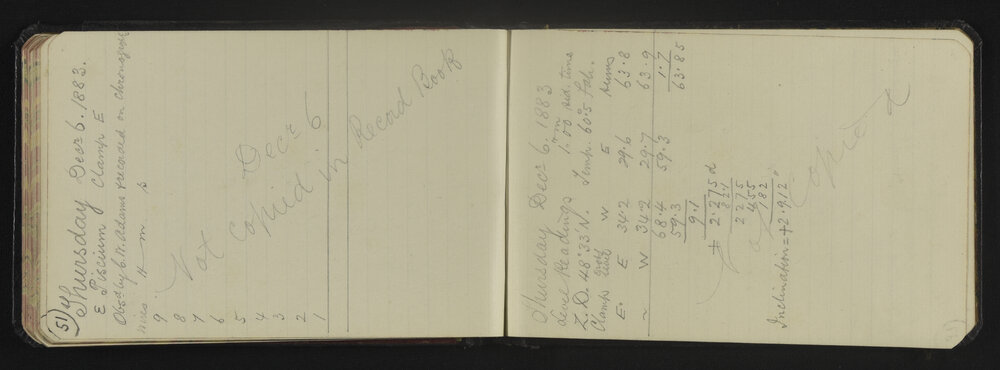 (51)
Thursday Decr 6. 1883.
ε Piscium Clamp E
Obsd by C.W. Adams & recorded on Chronograph
wires H m s
9
8
7
6
5
4
3
2
1
Not Copied in Record Book
Decr 6
Thursday Decr 6. 1883
Level Readings 1h 00m sid. time
Z.D. 48° 33' N. Temp. 60°.5 Fah.
Clamp E W E Sums
E. E 34.2 29.6 63.8
~ W 34.2 29.7 63.9
68.4 59.3 1.7
59.3 63.85
9.1
+ 2.275 d
821
2275
455
182
Inclination = +2.912"